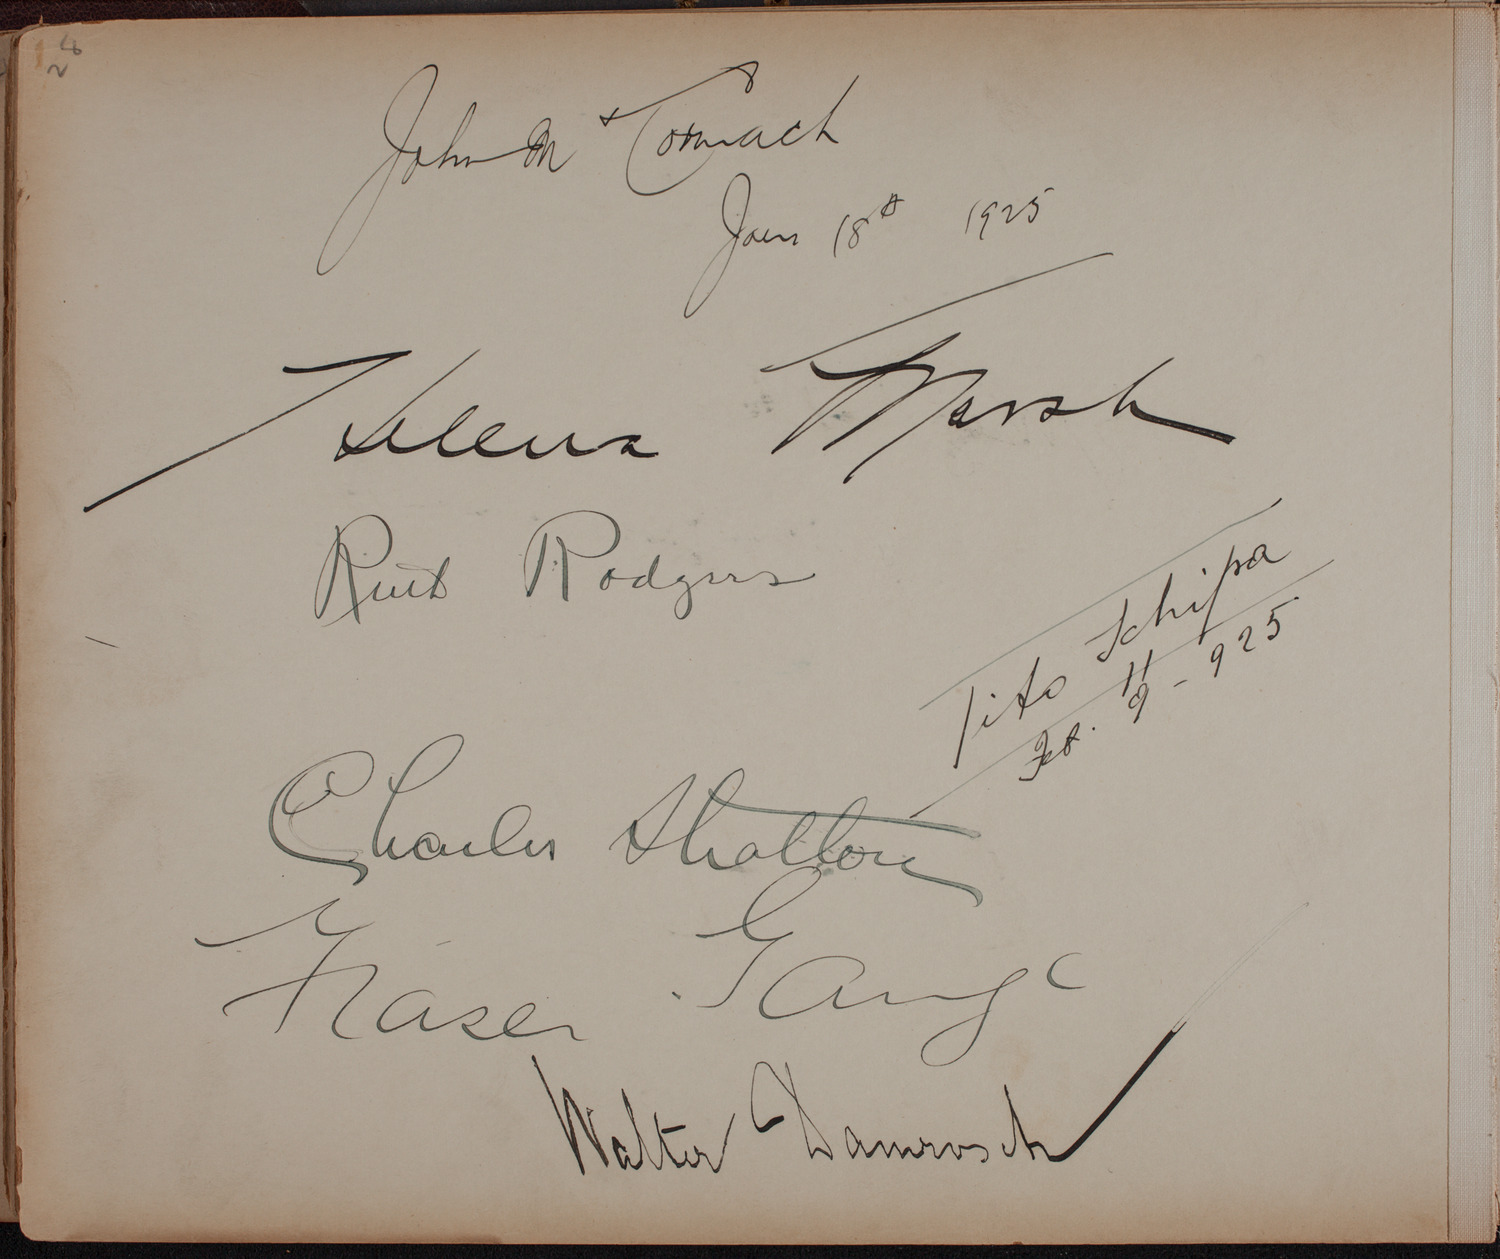 28
John McCormack
Jan 18th 1925
Helena Marsh
Ruth Rodgers
Tito Schipa
Feb. 11
9 - 925
Charles Stratton
Fraser Gange
Walter Damrosch